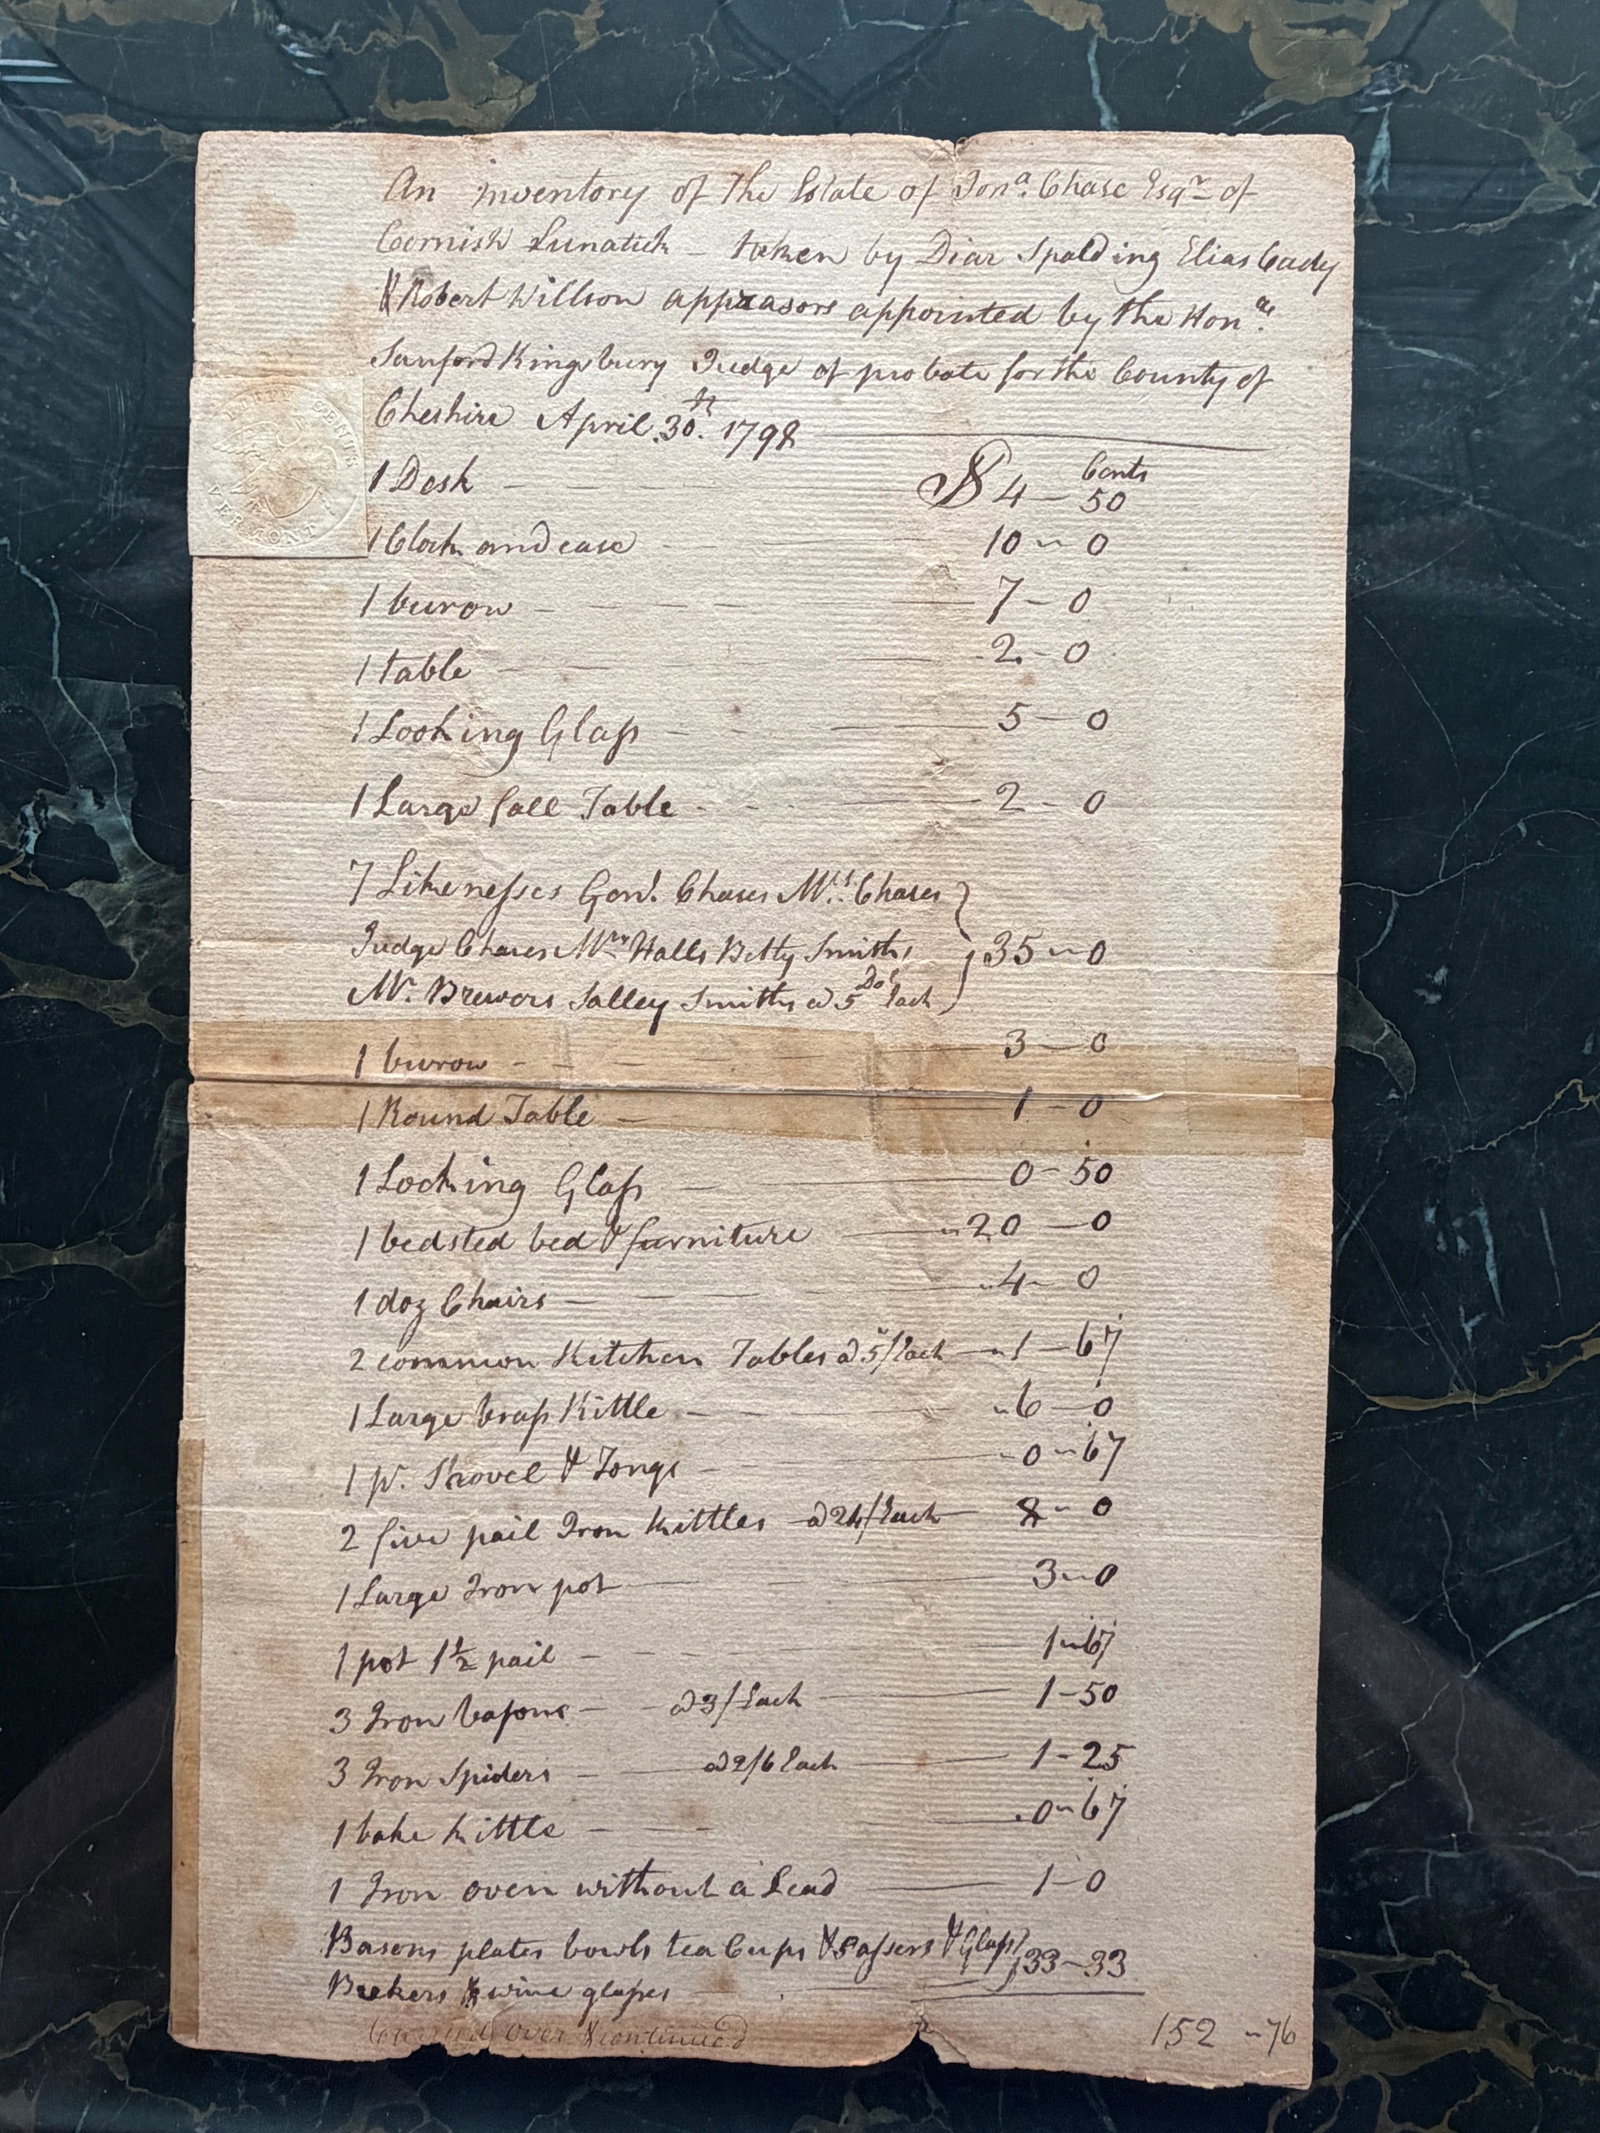 An inventory of the Estate of Jonª. Chase Esqr of
Cornish Lunatick – taken by Diar Spalding Elias Cady
& Robert Willson appraasors appointed by the Honᵃˡ.
Sanford Kingsbury Judge of probate for the County of
Cheshire April 30th. 1798
Cents
1 Desk $ 4 – 50
1 Clock and case 10 – 0
1 burow 7 – 0
1 table 2 – 0
1 Looking Glass 5 – 0
1 Large fall Table 2 – 0
7 Likenesses Genl. Chases Mrs. Chases
Judge Chases Mrs Halls Betty Smiths 35 – 0
Mr. Brewers Salley Smiths @ 5 Dols Each
1 burow 3 – 0
1 Round Table 1 – 0
1 Looking Glass 0 – 50
1 bedsted bed & furniture 20 – 0
1 doz Chairs 4 – 0
2 common Kitchen Tables @ 5/ Each 1 – 67
1 Large brass Kittle 6 – 0
1 pr. Shovel & Tongs 0 – 67
2 five pail Iron Kittles @ 24/ Each 8 – 0
1 Large Iron pot 3 – 0
1 pot 1½ pail 1 – 67
3 Iron basons @ 3/ Each 1 – 50
3 Iron Spiders @ 2/6 Each 1 – 25
1 bake Kittle 0 – 67
1 Iron oven without a Lead 1 – 0
Basons plates bowls tea Cups & sassers & Glass 33 – 33
Beekers & wine glasses
Carried over & continued 152 – 76
FIFTY CENTS
VERMONT